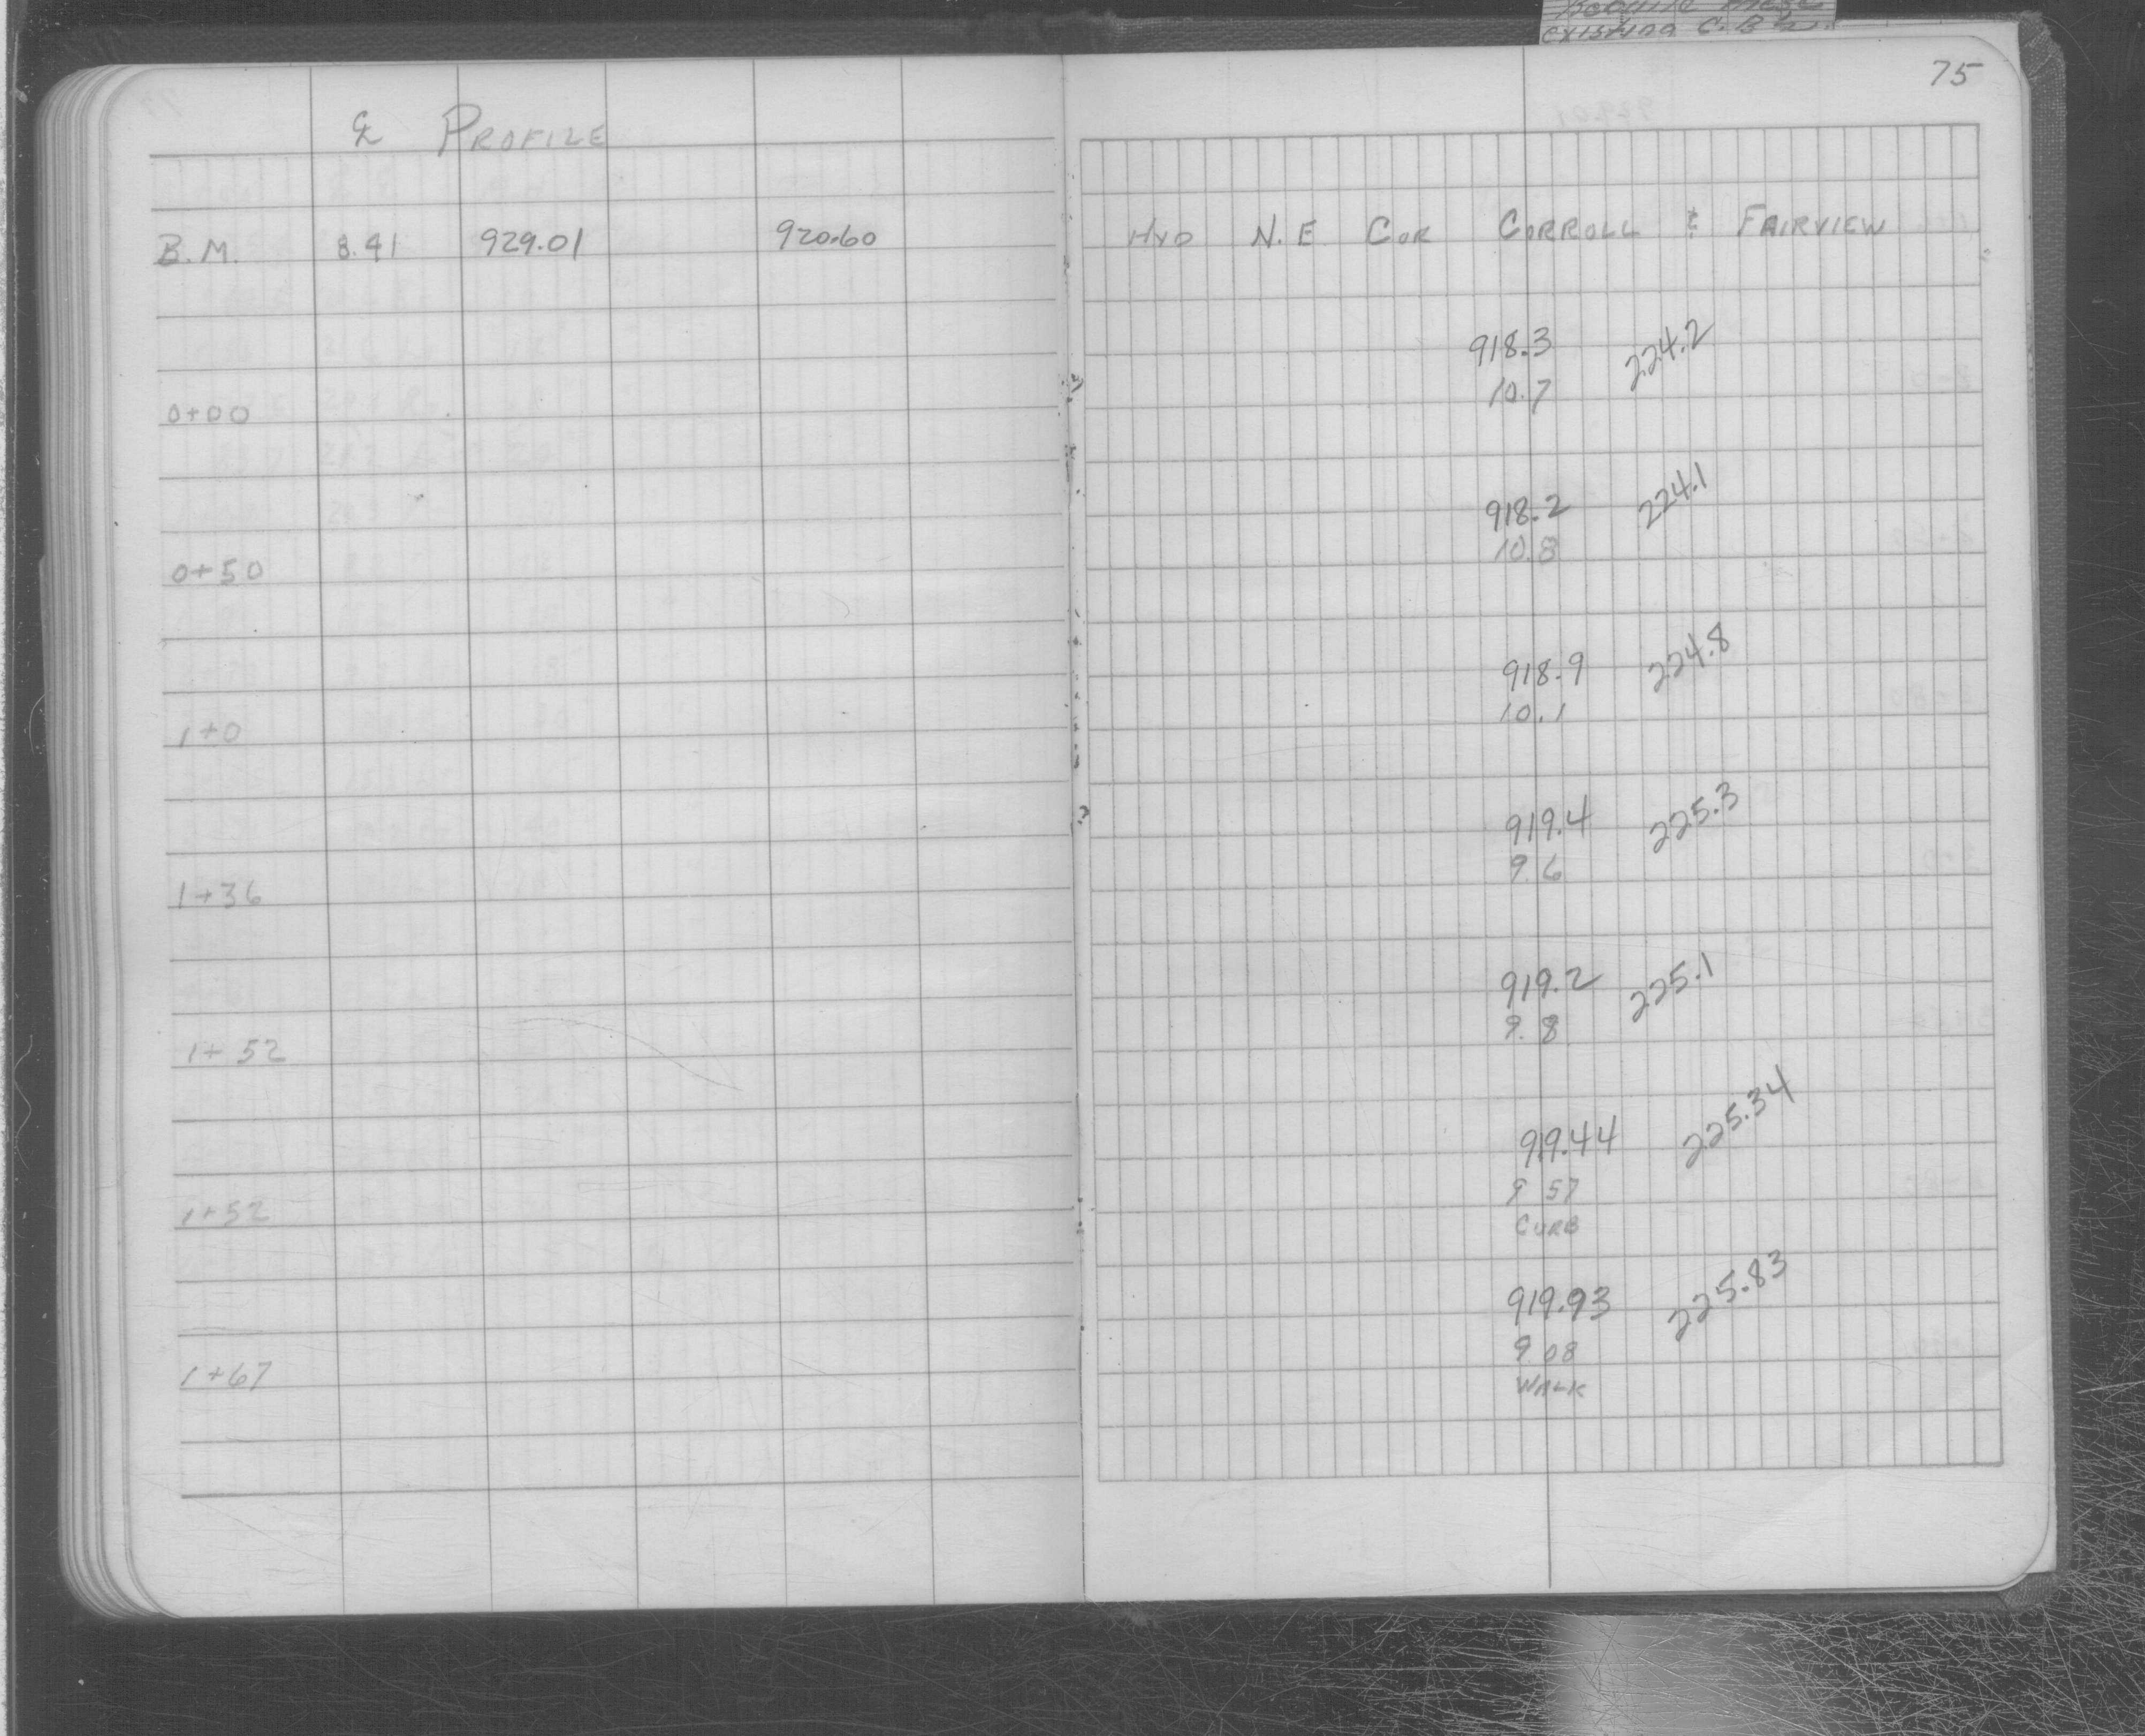 existing C.B's.
75
℄ PROFILE
B.M. 8.41 929.01 920.60 HYD N.E COR CORROLL & FAIRVIEW
918.3 224.2
0+00 10.7
918.2 224.1
0+50 10.8
918.9 224.8
1+0 10.1
919.4 225.3
1+36 9.6
919.2 225.1
1+52 9.8
919.44 225.34
1+52 9 57
CURB
919.93 225.83
1+67 9 08
WALK